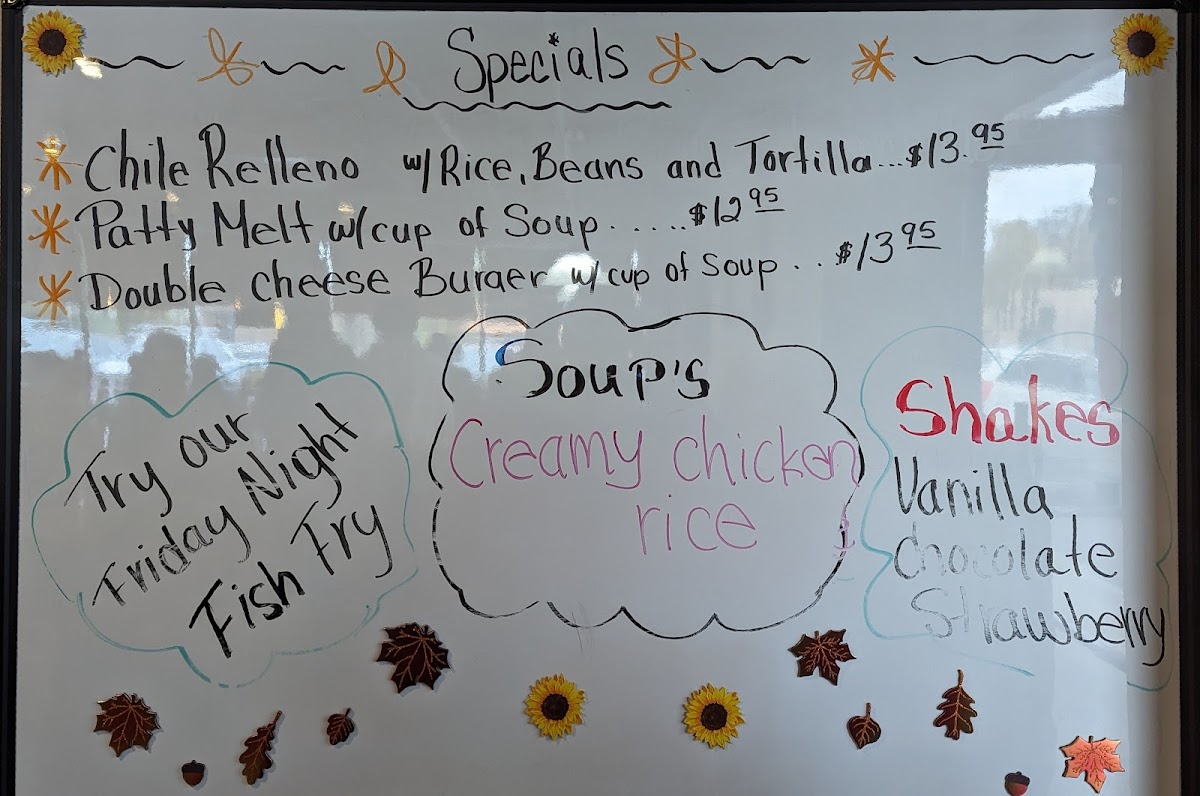 Specials
Chile Relleno w/ Rice, Beans and Tortilla...$13.95
Patty Melt w/cup of Soup......$12 95
Double cheese Burger w/ cup of Soup...$13 95
Try our
Friday Night
Fish Fry
Soup's
Creamy chicken
rice
Shakes
Vanilla
Chocolate
Strawberry